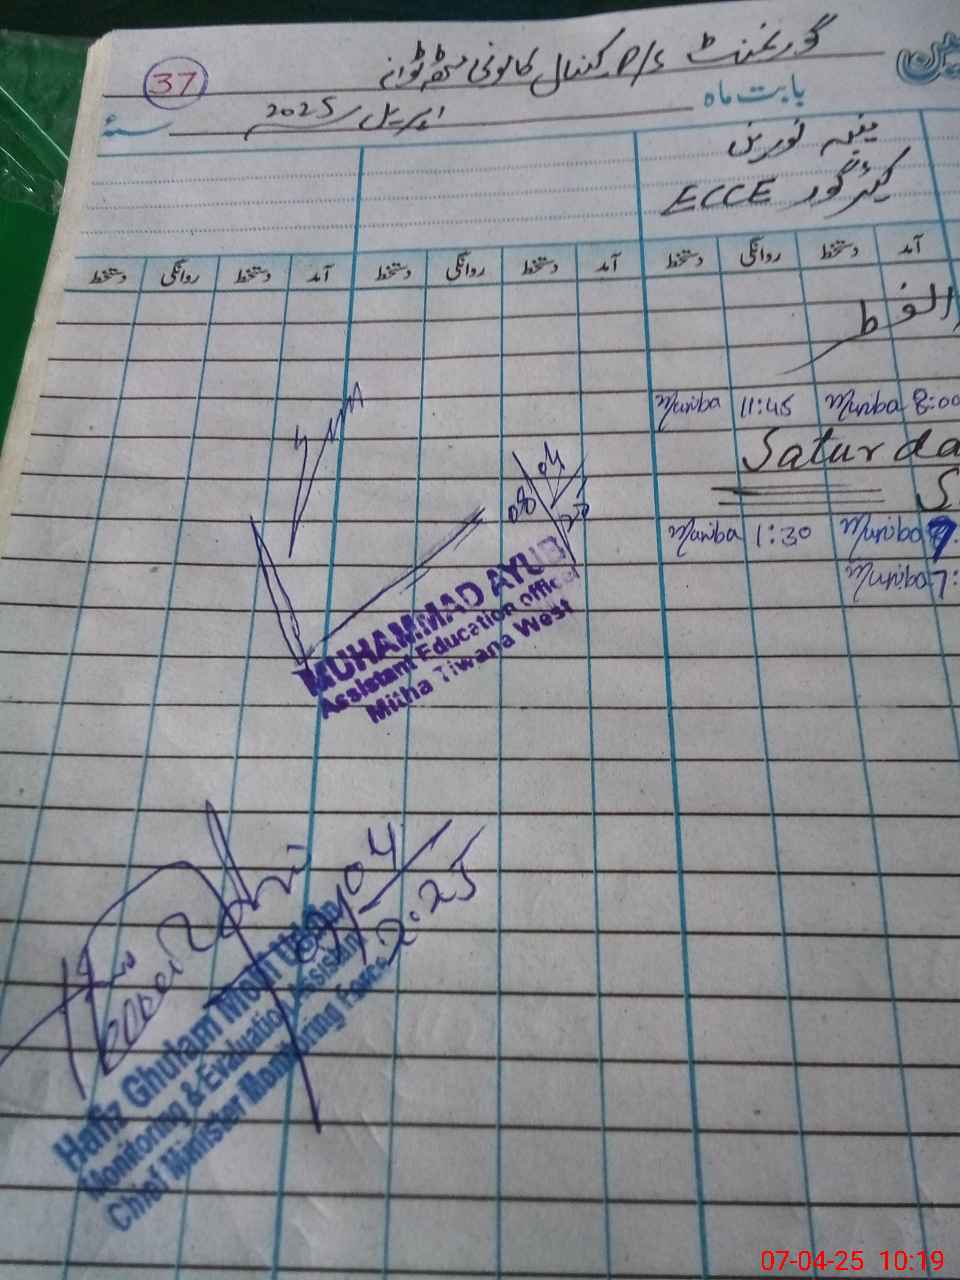 37
گورنمنٹ P/S کینال کالونی مٹھہ ٹوانہ
بابت ماہ اپریل 2025 سنہ
ECCE کیئر گور
آمد دستخط روانگی دستخط آمد دستخط روانگی دستخط آمد دستخط روانگی دستخط
الفطر
Muniba 11:45 Muniba 8:00
Saturda
S
Muniba 1:30 Muniba
Muniba 7:
08 04 25
MUHAMMAD AYUB
Assistant Education officer
Mitha Tiwana West
04
2.25
Hafiz Ghulam Mohi Ud Din
Monitoring & Evaluation Assistant
Chief Minister Monitoring Force
07-04-25 10:19